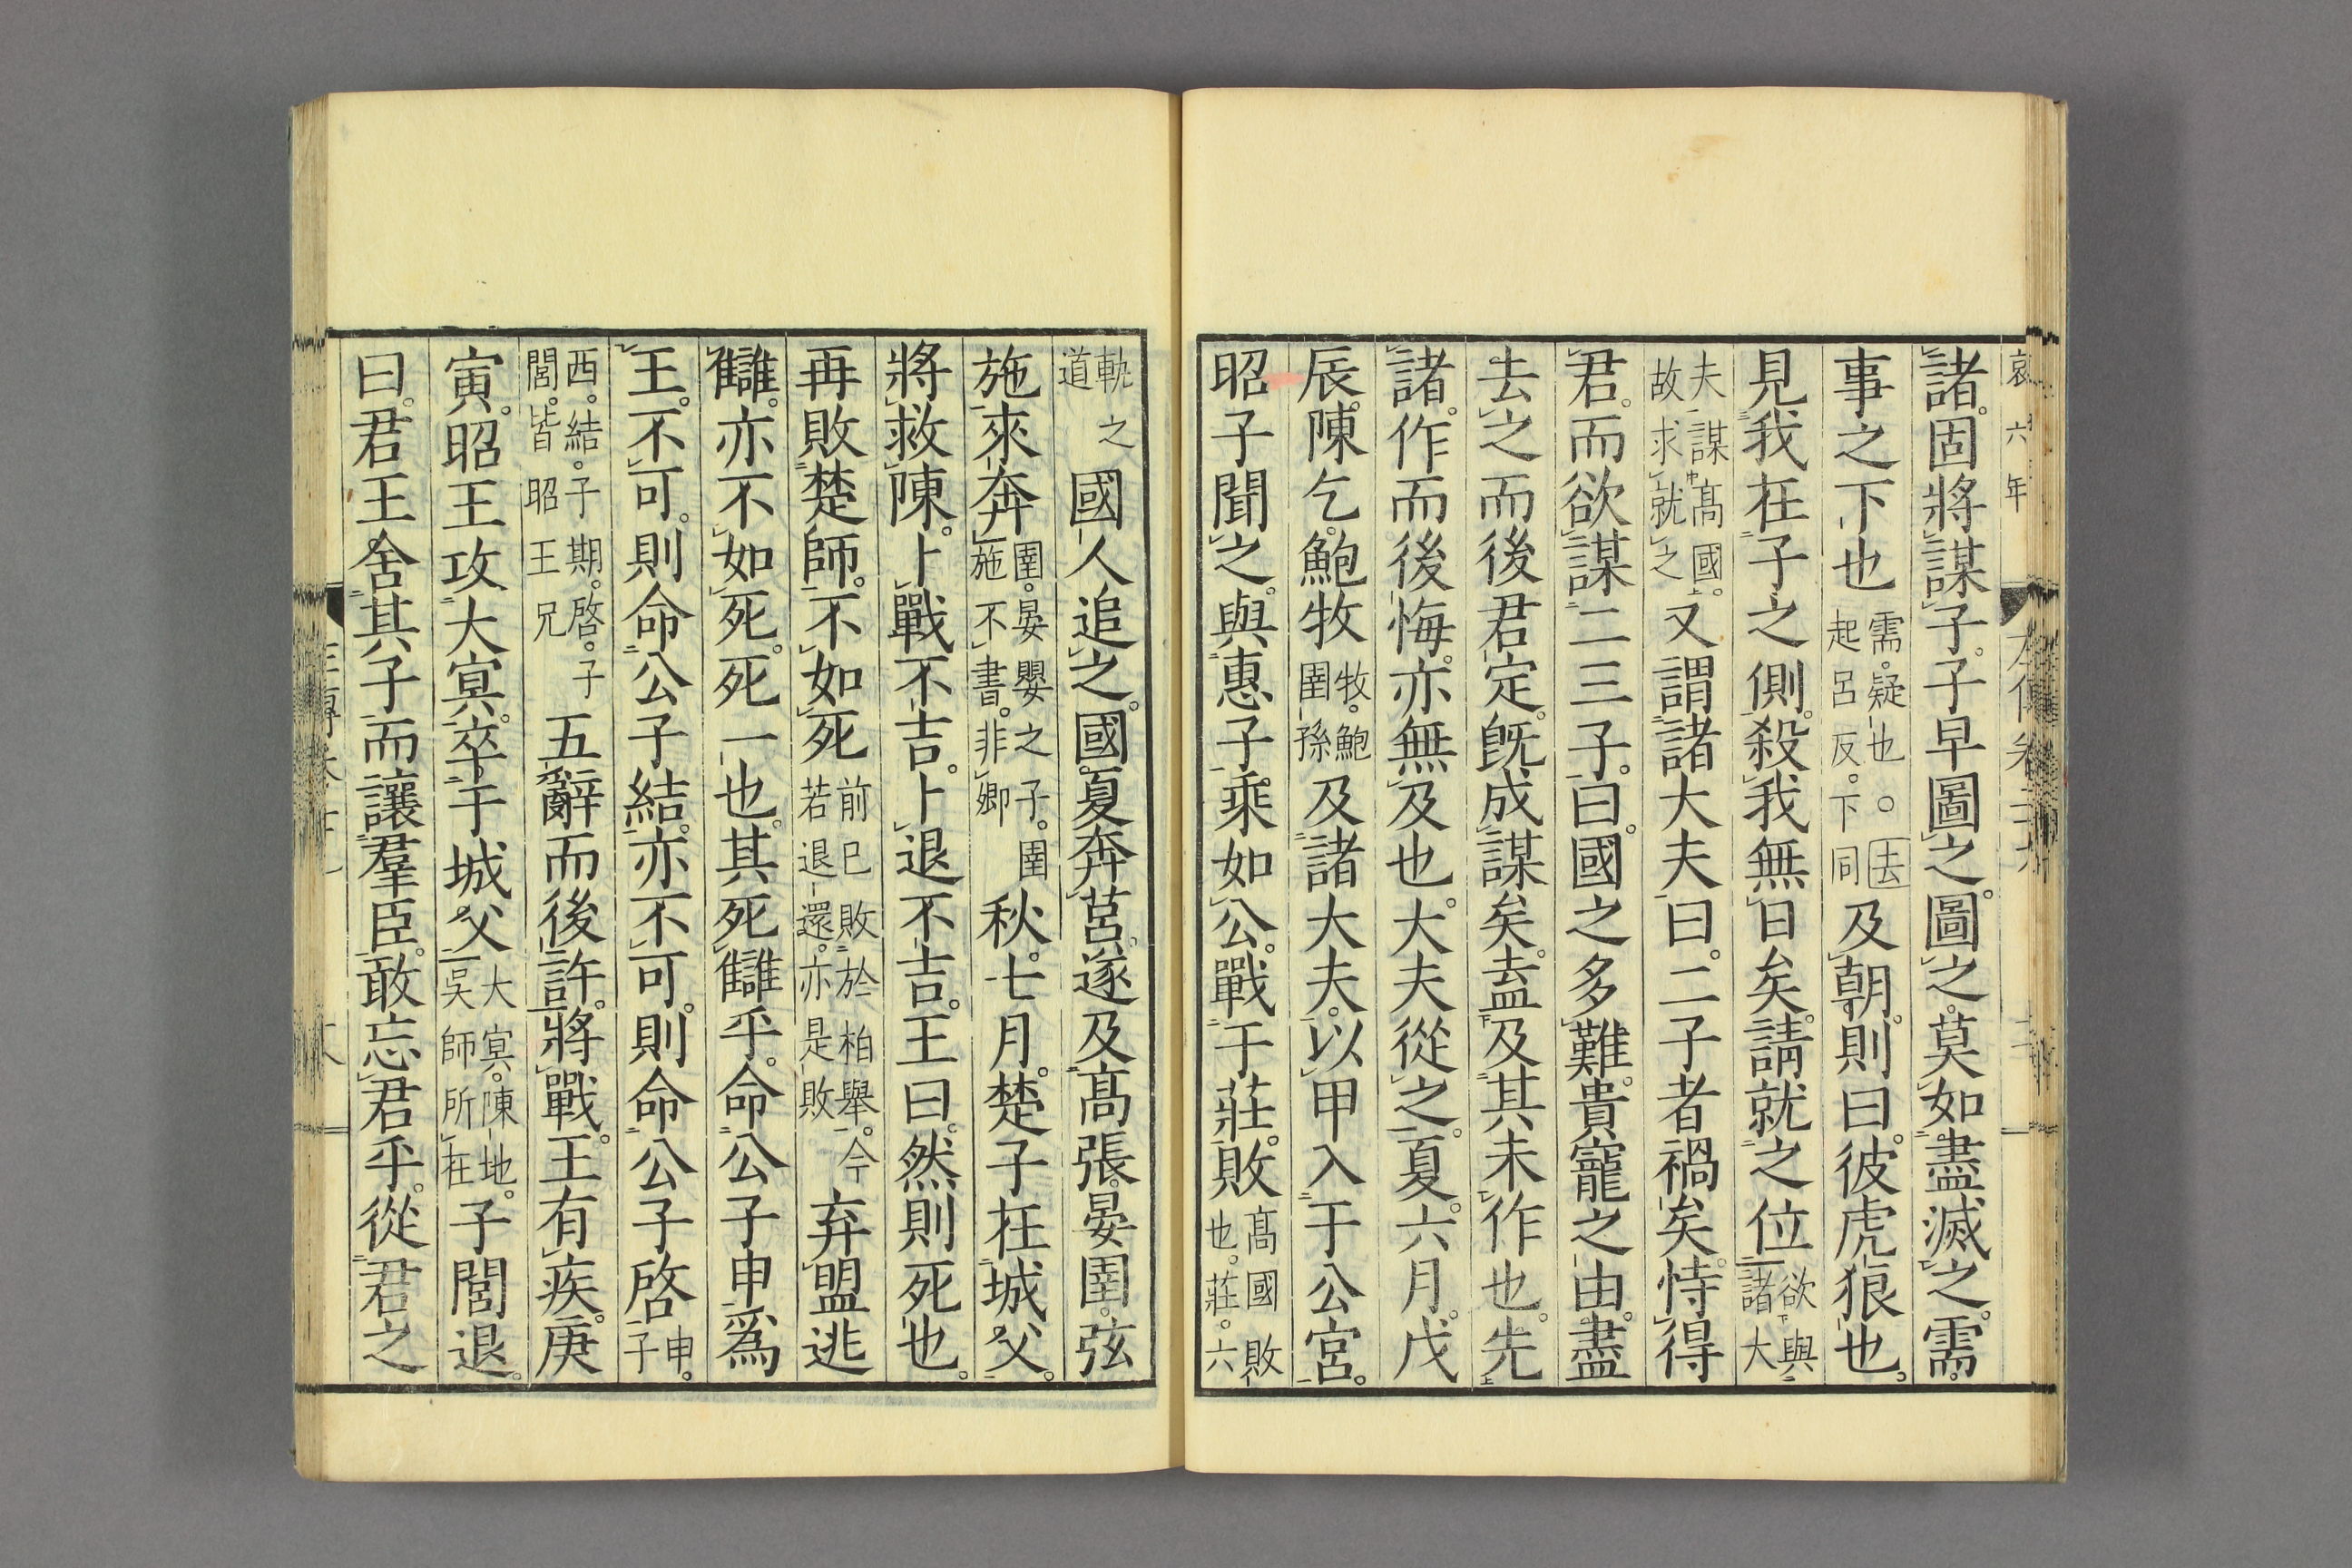 哀六年
諸。固將謀子。子早圖之。圖之。莫如盡滅之。需。
事之下也需。疑也。○去起呂反。下同及朝。則曰。彼虎狼也。
見我在子之側。殺我無日矣。請就之位欲與諸大
夫謀高國。故求就之又謂諸大夫曰。二子者禍矣。恃得
君。而欲謀二三子。曰。國之多難。貴寵之由。盡
去之而後君定。既成謀矣。盍及其未作也。先
諸。作而後悔。亦無及也。大夫從之。夏。六月。戊
辰。陳乞。鮑牧牧。鮑圉孫及諸大夫。以甲入于公宮。
昭子聞之。與惠子。乘如公。戰于莊。敗高國敗也。莊。六
軌之道國人追之。國夏奔莒。遂及高張。晏圉。弦
施。來奔圉。晏嬰之子。圉施不書。非卿秋。七月。楚子在城父。
將救陳。卜戰不吉。卜退不吉。王曰。然則死也。
再敗楚師。不如死前已敗於柏舉。今若退還。亦是敗弃盟逃
讎。亦不如死。死一也。其死讎乎。命公子申爲
王。不可。則命公子結。亦不可。則命公子啓申。子
西。結。子期。啓。子閭。皆昭王兄五辭而後許。將戰。王有疾。庚
寅。昭王攻大冥。卒于城父大冥。陳地。吳師所在子閭退。
曰。君王舍其子而讓羣臣。敢忘君乎。從君之